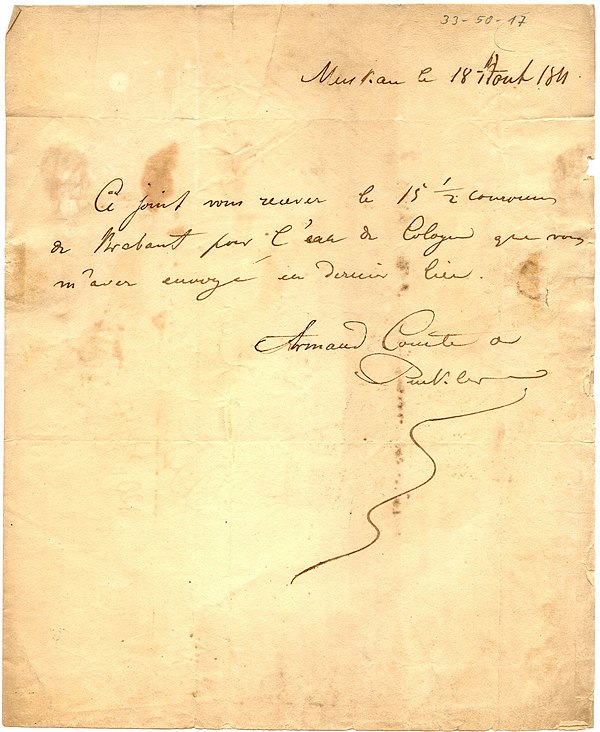 33-50-17
Muskau le 18 Aout 1811.
Ci joint vous recever le 15 1/2 couronns
de Brabant pour l'eau de Cologne que vous
m'aver envoyé en dernir lieu.
Armand Comte de
Puckler